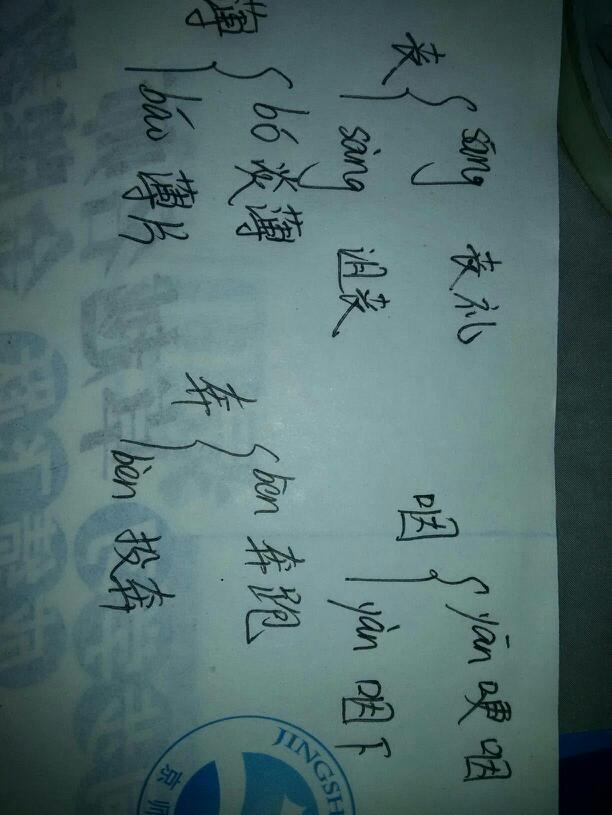 丧 { sāng 丧礼
sàng 沮丧
咽 { yān 哽咽
yàn 咽下
薄 { bó 淡薄
báo 薄片
奔 { bēn 奔跑
bèn 投奔
JINGSH
京师